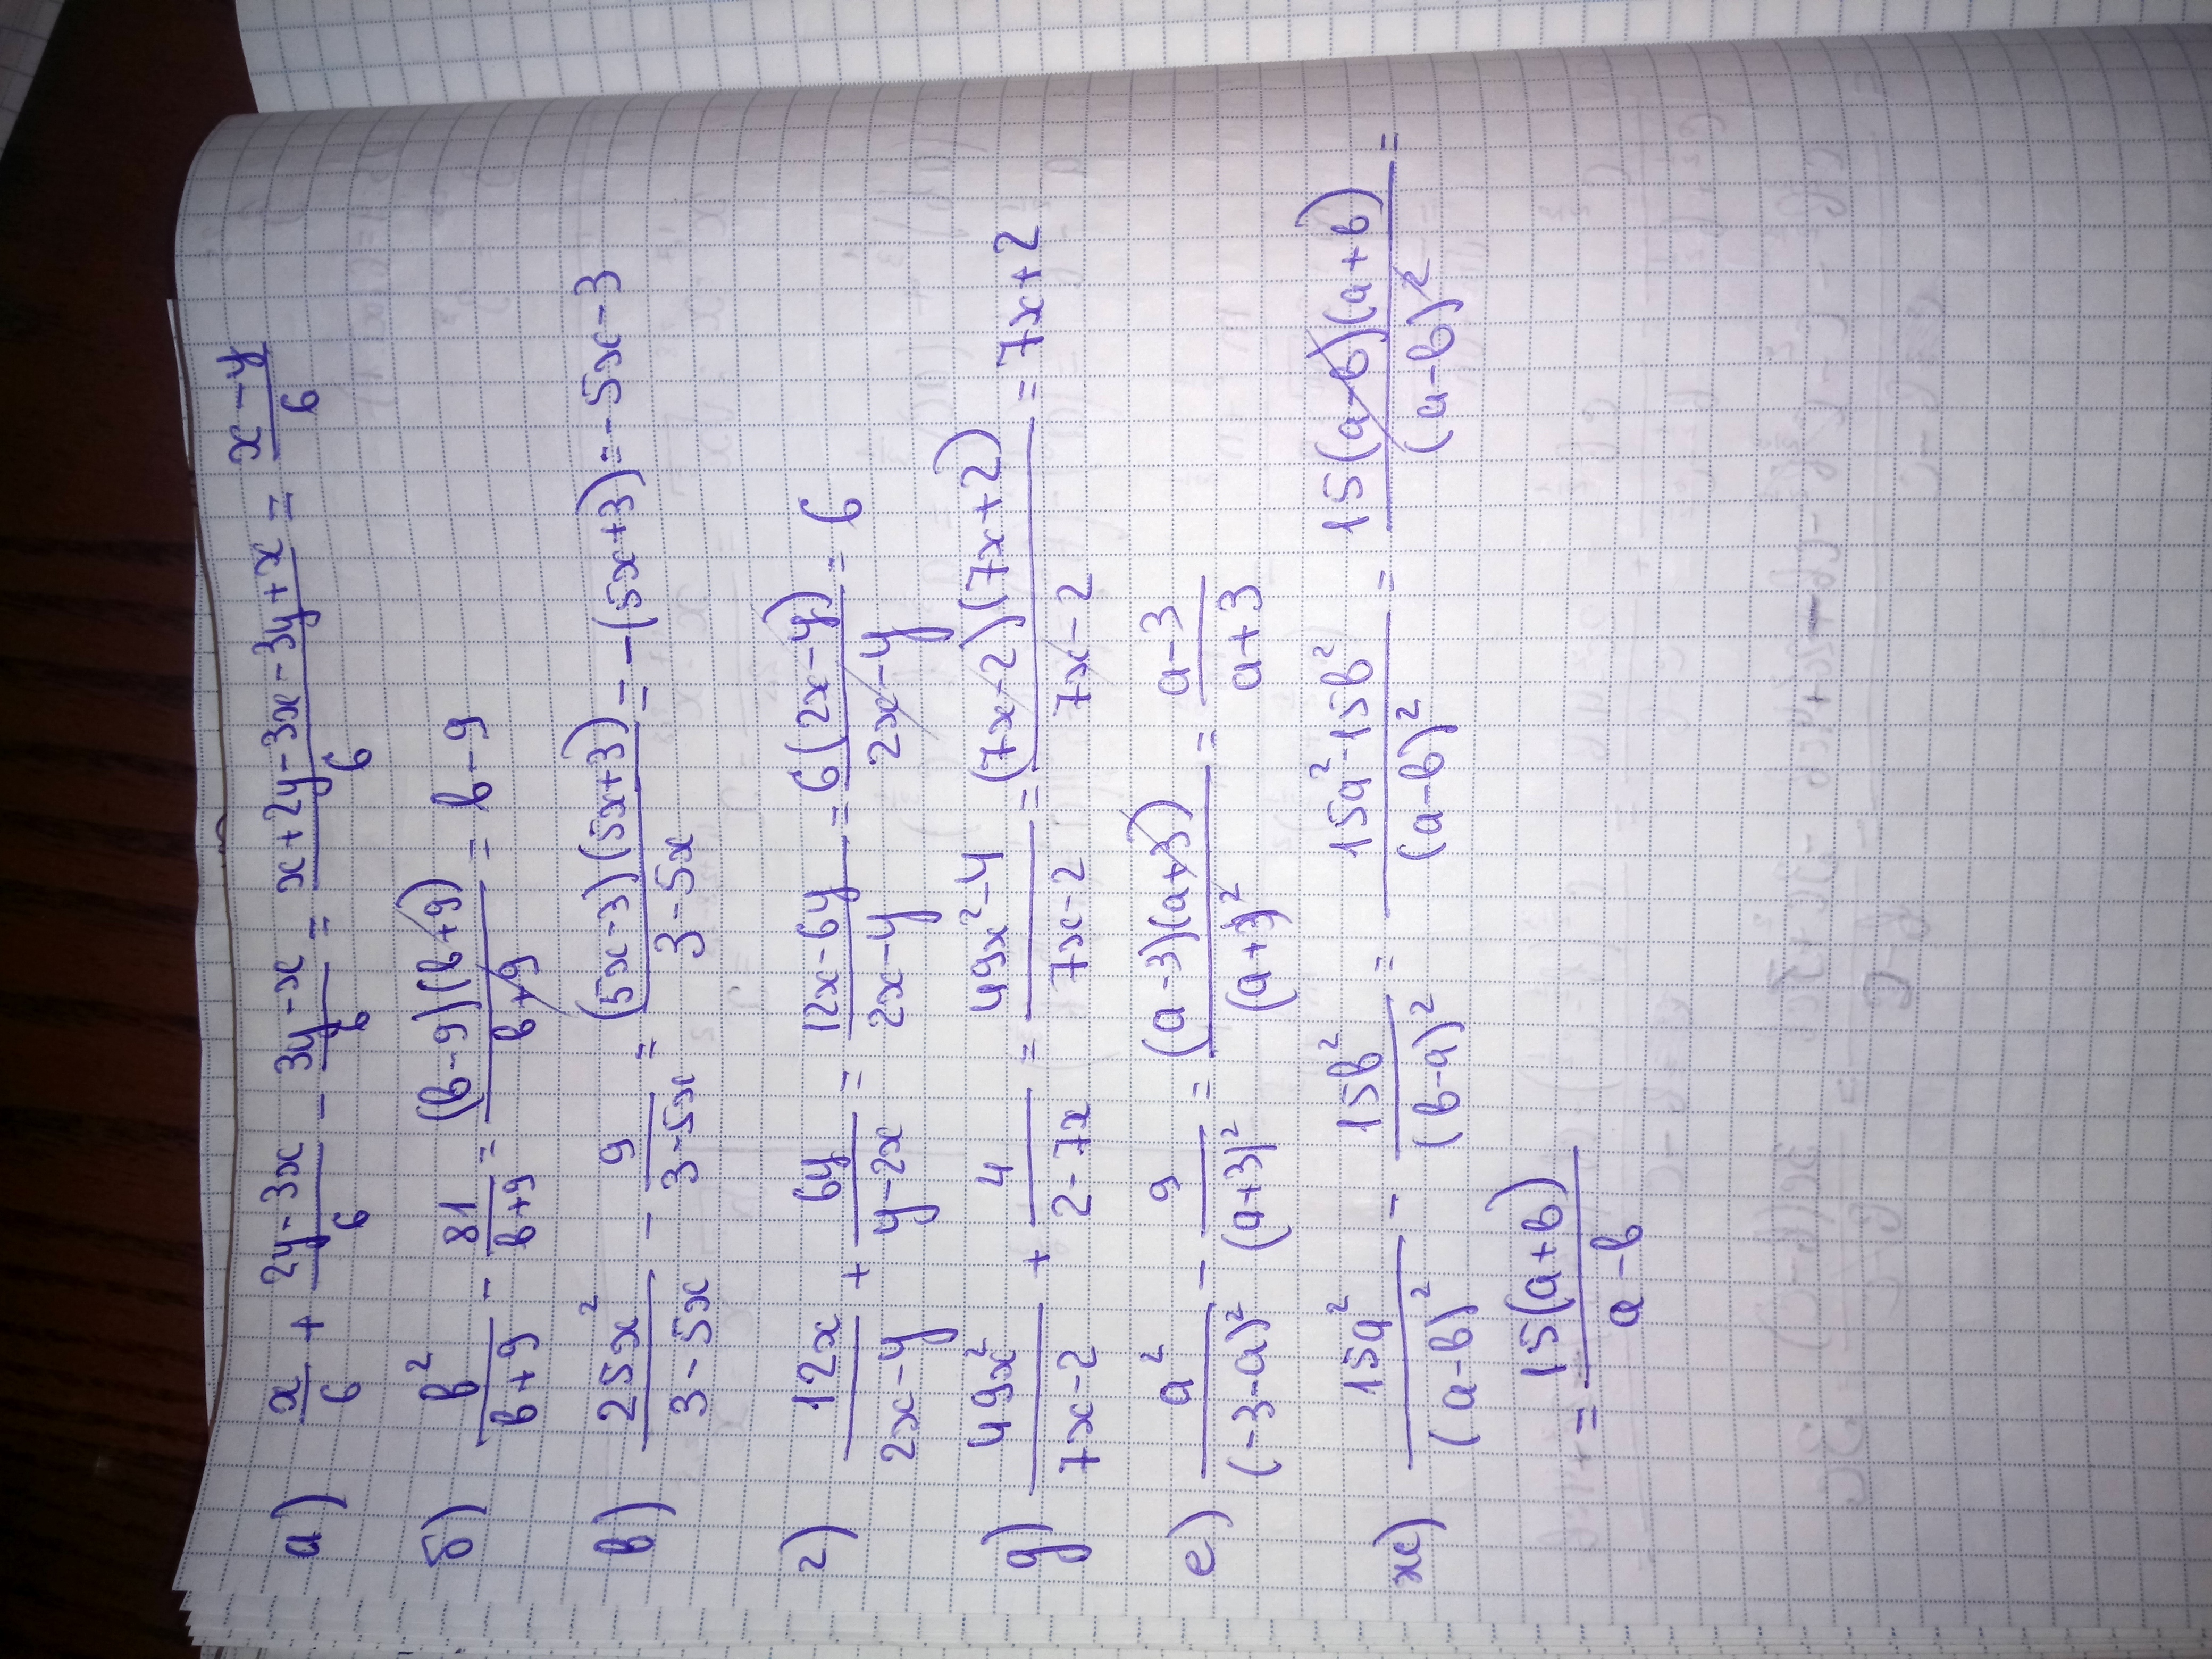 а) x/6 + (2y-3x)/6 - (3y-x)/6 = (x+2y-3x-3y+x)/6 = (x-y)/6
б) b²/(b+9) - 81/(b+9) = (b-9)(b+9)/(b+9) = b-9
в) 25x²/(3-5x) - 9/(3-5x) = (5x-3)(5x+3)/(3-5x) = -(5x+3) = -5x-3
г) 12x/(2x-y) + 6y/(y-2x) = (12x-6y)/(2x-y) = 6(2x-y)/(2x-y) = 6
д) 49x²/(7x-2) + 4/(2-7x) = (49x²-4)/(7x-2) = (7x-2)(7x+2)/(7x-2) = 7x+2
е) a²/(-3-a)² - 9/(a+3)² = (a-3)(a+3)/(a+3)² = (a-3)/(a+3)
ж) 15a²/(a-b)² - 15b²/(b-a)² = (15a²-15b²)/(a-b)² = 15(a-b)(a+b)/(a-b)² =
= 15(a+b)/(a-b)